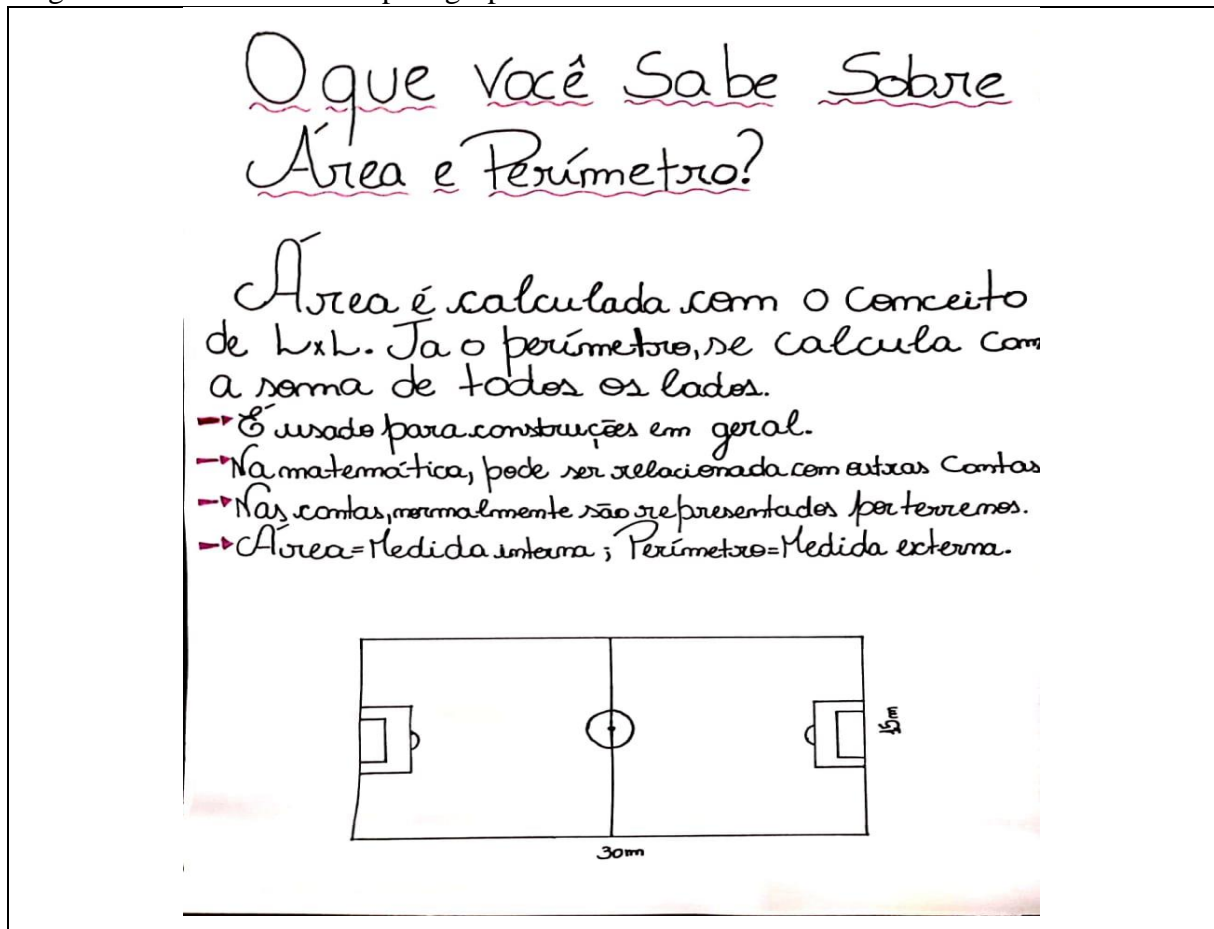 O que Você Sabe Sobre
Área e Perímetro?
Área é calculada com o conceito
de LxL. Ja o perímetro, se calcula com
a soma de todos os lados.
É usado para construções em geral.
Na matemática, pode ser relacionada com outras Contas
Nas contas, normalmente são representados por terrenos.
Área=Medida interna; Perímetro=Medida externa.
15m
30m